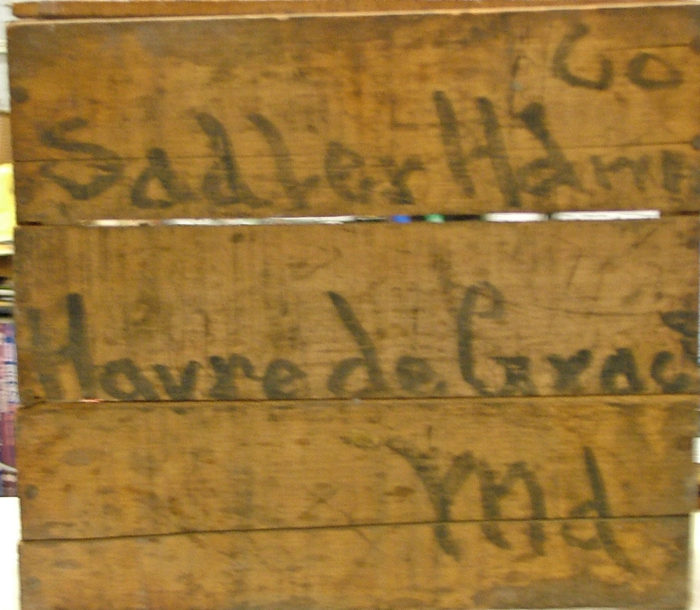 Co
Sadler
Havre de Grace
Md